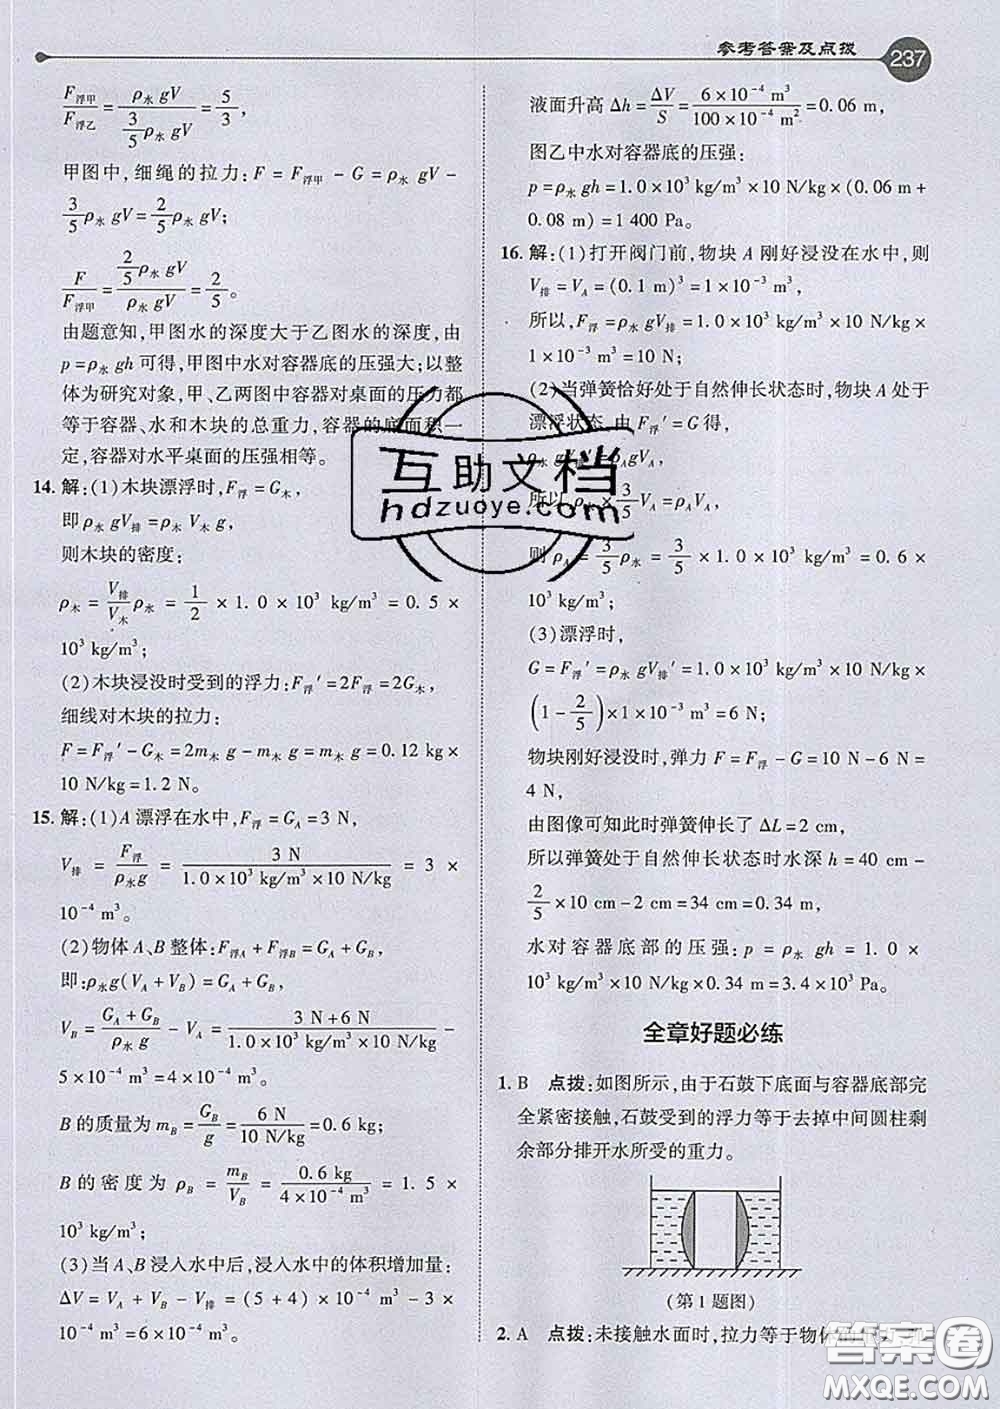 参考答案及点拨
237
F浮甲/F浮乙 = ρ水 gV / (3/5 ρ水 gV) = 5/3，
甲图中，细绳的拉力：F = F浮甲 - G = ρ水 gV -
3/5 ρ水 gV = 2/5 ρ水 gV；
F/F浮甲 = (2/5 ρ水 gV) / (ρ水 gV) = 2/5。
由题意知，甲图水的深度大于乙图水的深度，由
p = ρ水 gh 可得，甲图中水对容器底的压强大；以整
体为研究对象，甲、乙两图中容器对桌面的压力都
等于容器、水和木块的总重力，容器的底面积一
定，容器对水平桌面的压强相等。
14. 解：(1)木块漂浮时，F浮 = G木，
即 ρ水 gV排 = ρ木 V木 g，
则木块的密度：
ρ木 = V排/V木 ρ水 = 1/2 × 1.0 × 10³ kg/m³ = 0.5 ×
10³ kg/m³；
(2)木块浸没时受到的浮力：F浮′ = 2F浮 = 2G木，
细线对木块的拉力：
F = F浮′ - G木 = 2m木 g - m木 g = m木 g = 0.12 kg×
10 N/kg = 1.2 N。
15. 解：(1)A 漂浮在水中，F浮 = GA = 3 N，
V排 = F浮/ρ水g = 3 N / (1.0×10³ kg/m³×10 N/kg) = 3 ×
10⁻⁴ m³。
(2)物体 A、B 整体：F浮A + F浮B = GA + GB，
即：ρ水g(VA + VB) = GA + GB，
VB = (GA + GB)/ρ水 g - VA = (3 N+6 N) / (1.0×10³ kg/m³×10 N/kg) -
5×10⁻⁴ m³ = 4×10⁻⁴ m³；
B 的质量为 mB = GB/g = 6 N / 10 N/kg = 0.6 kg；
B 的密度为 ρB = mB/VB = 0.6 kg / 4×10⁻⁴ m³ = 1.5 ×
10³ kg/m³；
(3)当 A、B 浸入水中后，浸入水中的体积增加量：
ΔV = VA + VB - V排 = (5 + 4) × 10⁻⁴ m³ - 3 ×
10⁻⁴ m³ = 6×10⁻⁴ m³；
液面升高 Δh = ΔV/S = 6×10⁻⁴ m³ / 100×10⁻⁴ m² = 0.06 m，
图乙中水对容器底的压强：
p = ρ水 gh = 1.0×10³ kg/m³×10 N/kg×(0.06 m+
0.08 m) = 1 400 Pa。
16. 解：(1)打开阀门前，物块 A 刚好浸没在水中，则
V排 = VA = (0.1 m)³ = 1×10⁻³ m³，
所以，F浮 = ρ水 gV排 = 1.0×10³ kg/m³×10 N/kg×
1×10⁻³ m³ = 10 N；
(2)当弹簧恰好处于自然伸长状态时，物块 A 处于
漂浮状态，由 F浮′ = G 得，
ρ水 gV排 = ρA gVA，
所以 ρ水 × 3/5 VA = ρA VA，
则 ρA = 3/5 ρ水 = 3/5 × 1.0 × 10³ kg/m³ = 0.6 ×
10³ kg/m³；
(3)漂浮时，
G = F浮′ = ρ水 gV排′ = 1.0×10³ kg/m³×10 N/kg
×(1 - 2/5)×1×10⁻³ m³ = 6 N；
物块刚好浸没时，弹力 F = F浮 - G = 10 N - 6 N =
4 N，
由图像可知此时弹簧伸长了 ΔL = 2 cm，
所以弹簧处于自然伸长状态时水深 h = 40 cm -
2/5 × 10 cm - 2 cm = 34 cm = 0.34 m，
水对容器底部的压强：p = ρ水 gh = 1.0 ×
10³ kg/m³×10 N/kg×0.34 m = 3.4×10³ Pa。
全章好题必练
1. B 点拨：如图所示，由于石鼓下底面与容器底部完
全紧密接触，石鼓受到的浮力等于去掉中间圆柱剩
余部分排开水所受的重力。
(第 1 题图)
2. A 点拨：未接触水面时，拉力等于物体
互助文档
hdzuoye.com
答案卷
MXQE.COM